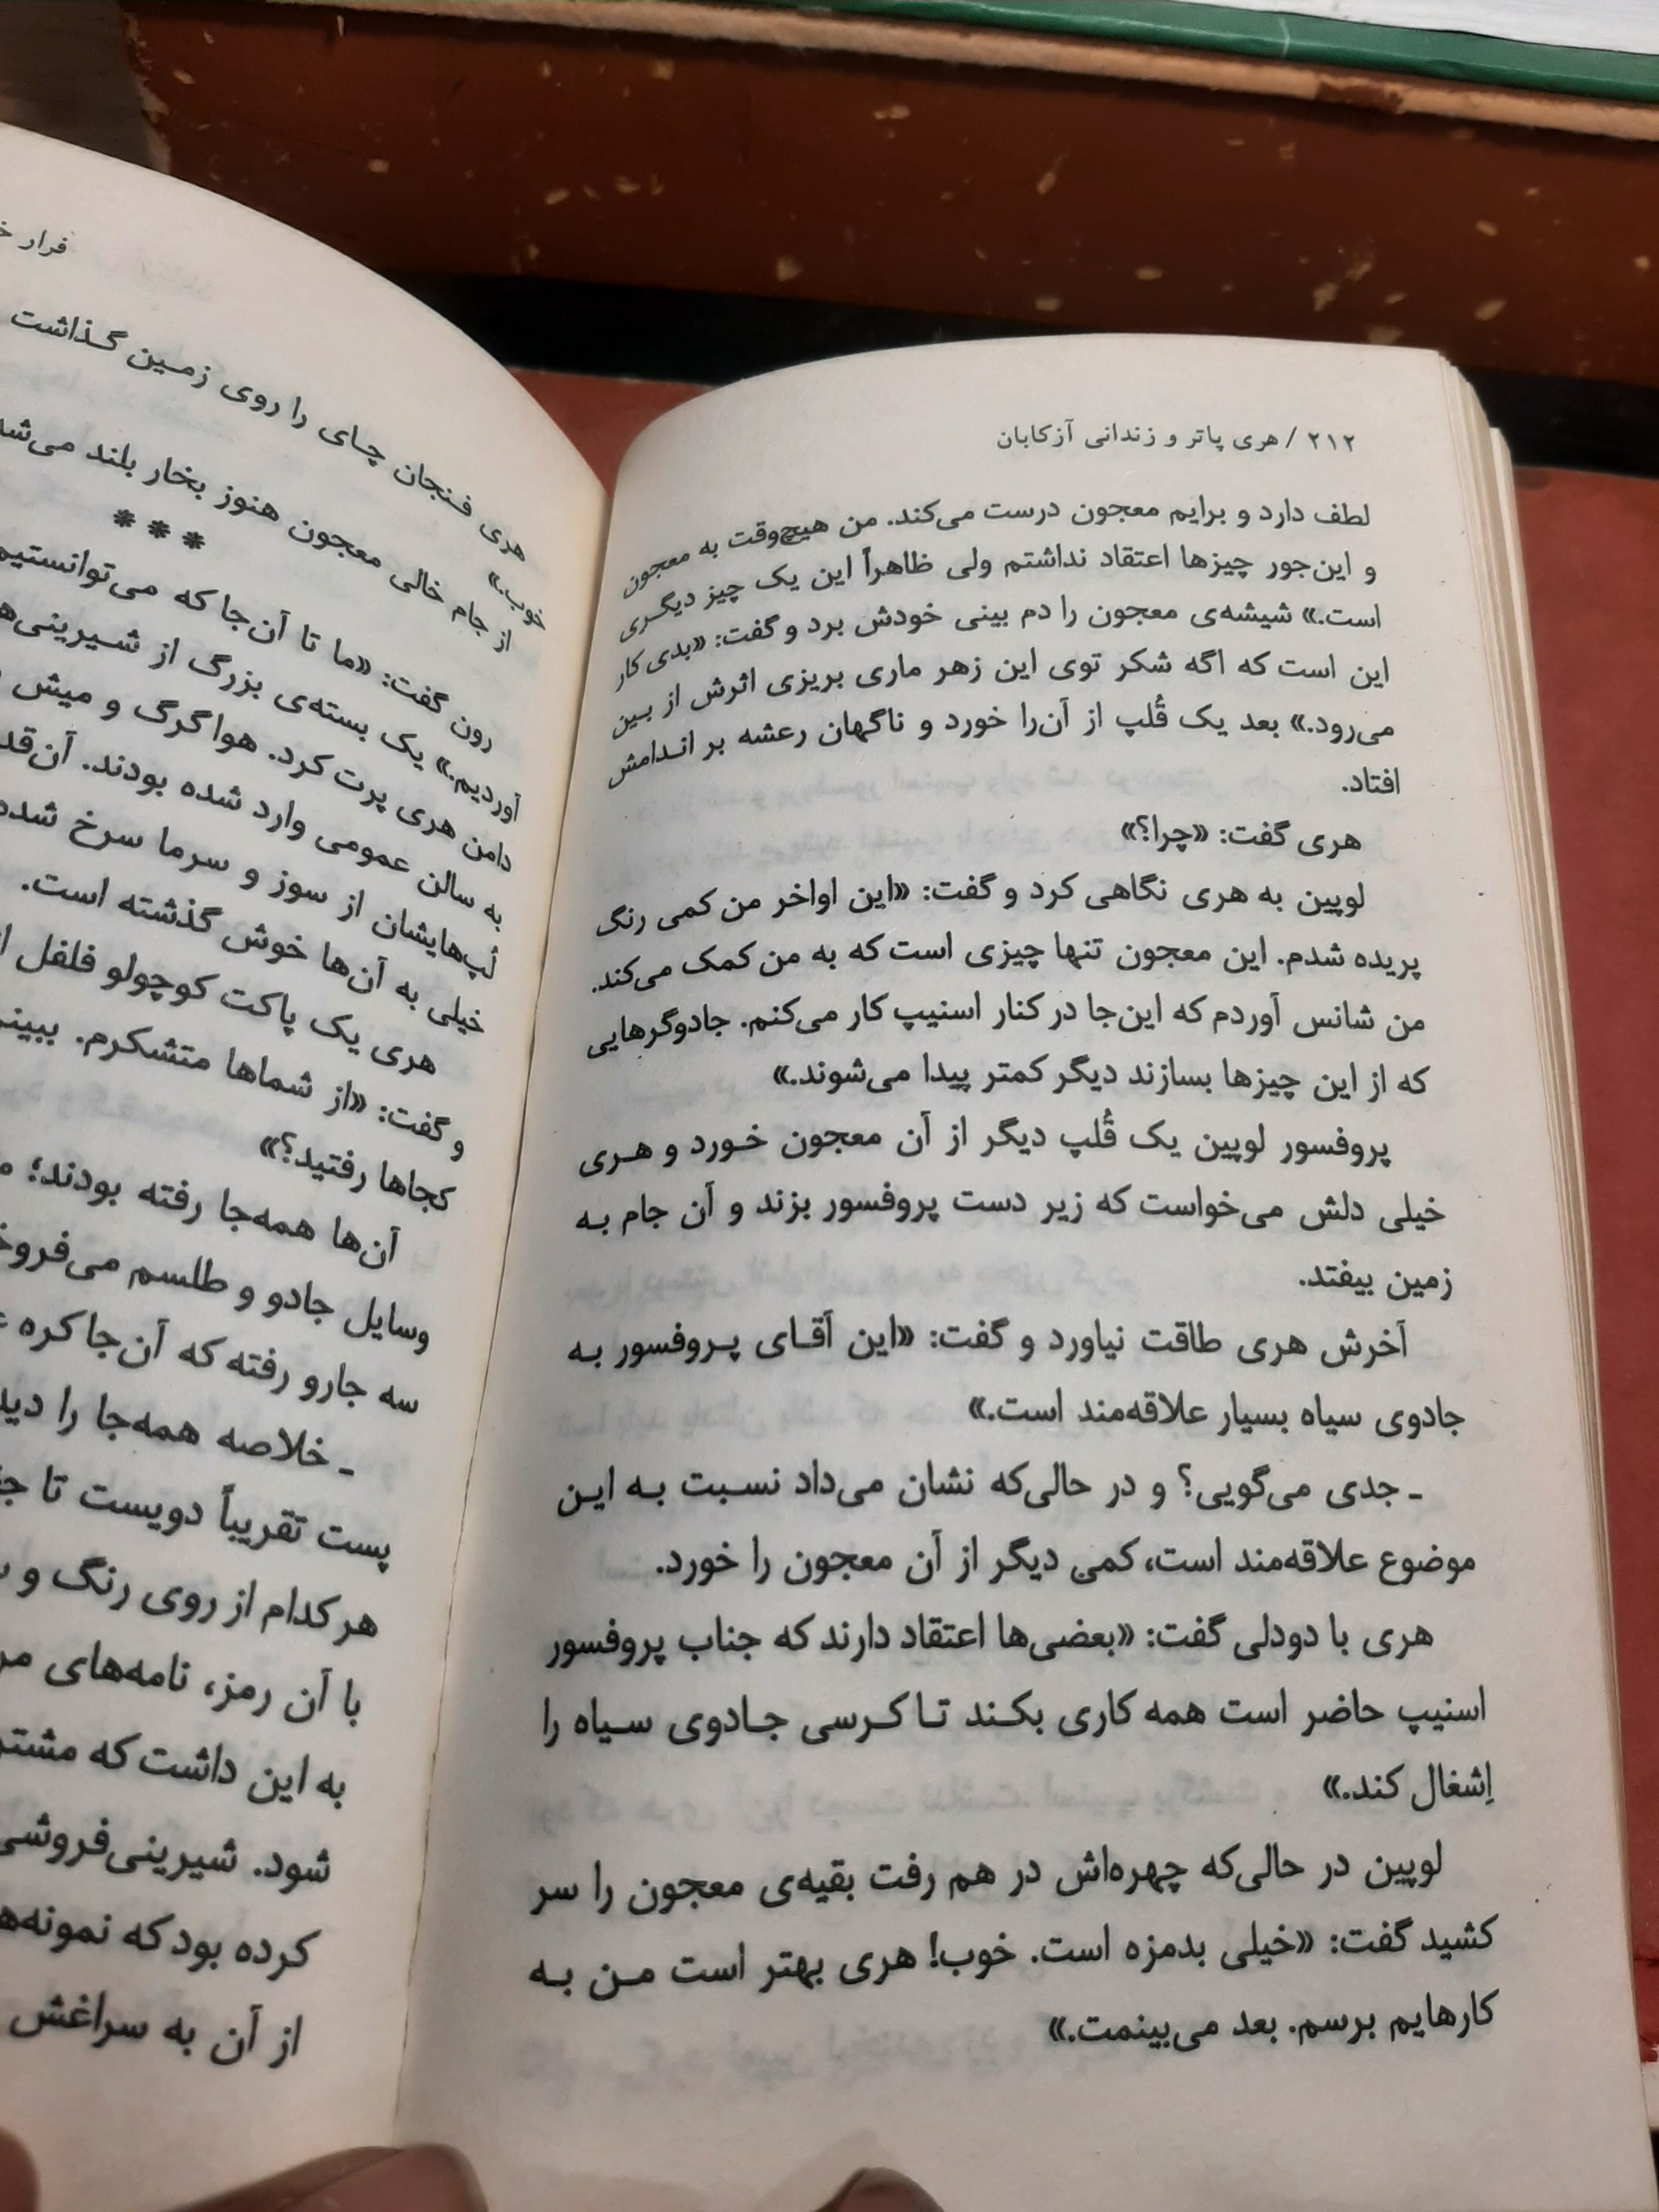 ۲۱۲ / هری پاتر و زندانی آزکابان
لطف دارد و برایم معجون درست می‌کند. من هیچ‌وقت به معجون
و این‌جور چیزها اعتقاد نداشتم ولی ظاهراً این یک چیز دیگری
است.» شیشه‌ی معجون را دم بینی خودش برد و گفت: «بدی کار
این است که اگه شکر توی این زهر ماری بریزی اثرش از بین
می‌رود.» بعد یک قُلپ از آن‌را خورد و ناگهان رعشه بر اندامش
افتاد.
هری گفت: «چرا؟»
لوپین به هری نگاهی کرد و گفت: «این اواخر من کمی رنگ
پریده شدم. این معجون تنها چیزی است که به من کمک می‌کند.
من شانس آوردم که این‌جا در کنار اسنیپ کار می‌کنم. جادوگرهایی
که از این چیزها بسازند دیگر کمتر پیدا می‌شوند.»
پروفسور لوپین یک قُلپ دیگر از آن معجون خورد و هری
خیلی دلش می‌خواست که زیر دست پروفسور بزند و آن جام به
زمین بیفتد.
آخرش هری طاقت نیاورد و گفت: «این آقای پروفسور به
جادوی سیاه بسیار علاقه‌مند است.»
ـ جدی می‌گویی؟ و در حالی‌که نشان می‌داد نسبت به این
موضوع علاقه‌مند است، کمی دیگر از آن معجون را خورد.
هری با دودلی گفت: «بعضی‌ها اعتقاد دارند که جناب پروفسور
اسنیپ حاضر است همه کاری بکند تا کرسی جادوی سیاه را
اِشغال کند.»
لوپین در حالی‌که چهره‌اش در هم رفت بقیه‌ی معجون را سر
کشید گفت: «خیلی بدمزه است. خوب! هری بهتر است من به
کارهایم برسم. بعد می‌بینمت.»
فرار
هری فنجان چای را روی زمین گذاشت
خوب.»
از جام خالی معجون هنوز بخار بلند می‌شد
* * *
رون گفت: «ما تا آن‌جا که می‌توانستیم
آوردیم.» یک بسته‌ی بزرگ از شیرینی‌ه
دامن هری پرت کرد. هوا گرگ و میش
به سالن عمومی وارد شده بودند. آن‌قد
لُپ‌هایشان از سوز و سرما سرخ شده
خیلی به آن‌ها خوش گذشته است.
هری یک پاکت کوچولو فلفل
و گفت: «از شماها متشکرم. ببینم
کجاها رفتید؟»
آن‌ها همه‌جا رفته بودند؛
وسایل جادو و طلسم می‌فروخ
سه جارو رفته که آن‌جا کره
ـ خلاصه همه‌جا را دید
پست تقریباً دویست تا ج
هرکدام از روی رنگ و
با آن رمز، نامه‌های مر
به این داشت که مشتر
شود. شیرینی‌فروشی
کرده بود که نمونه‌ه
از آن به سراغش